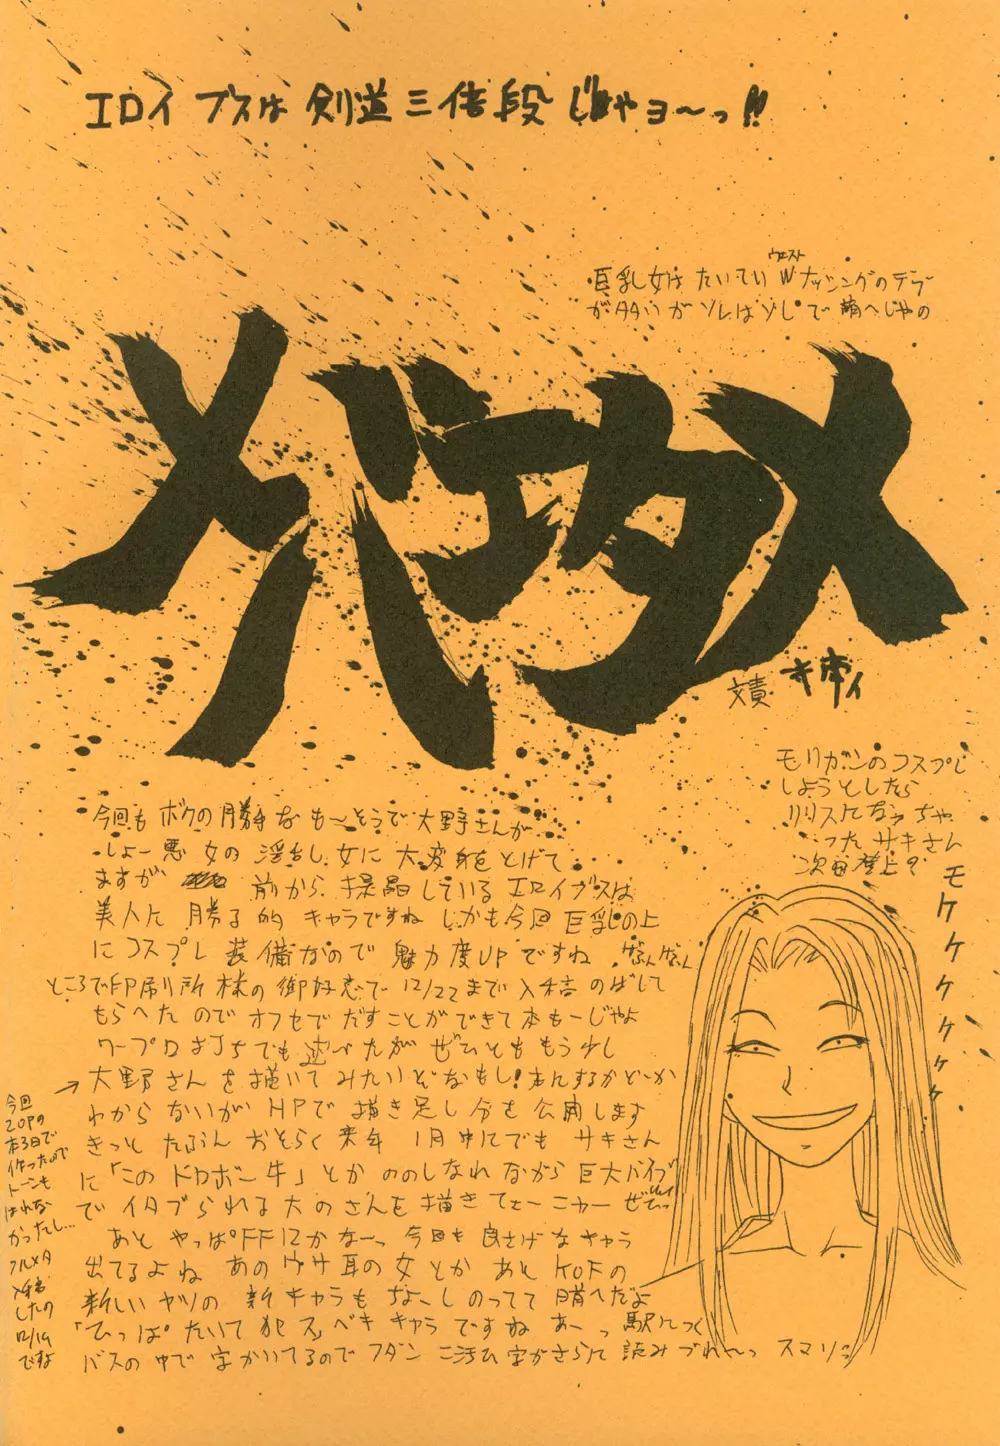 エロイ ブスは 剣道三倍段じゃョ〜っ!!
ウエスト
巨乳女は たいてい Wナッシングのデブ
が多いが ソレはソレで 萌へじゃの
メバエタメ
文責
モリガンのコスプレ
しようとしたら
リリスになっちゃ
った サキさん
次回登上?
モケケケケケケ
今回も ボクの勝手な も〜そうで 大野さんが
しょー悪女の 淫乱し女に 大変身をとげて
ますが 前から 提唱している エロイブスは
美人に 勝る 的 キャラですね しかも今回 巨乳の上
にコスプレ 装備なので 魅力度UPですね
ところで印刷所様の御好意で 12/22まで入稿のばして
もらへたので オフセでだすことができて本もーじゃよ
ワープロ打ちでも述べたが ぜひとももう少し
大野さんを描いてみたいぞなもし! 本にするかどーか
わからないが HPで描き足し分を公開します
きっと たぶん おそらく 来年 1月中にでも サキさん
に「このドロボー牛」とか ののしられながら 巨大バイブ
でイタブられる大のさんを描きてェーニャー ぜひっ
あと やっぱFF12かなーっ 今回も良さげなキャラ
出てるよね あのウサ耳の女とか あと KOFの
新しいヤツの 新キャラもなーしのってて 萌へだよ
「ひっぱたいて犯ス」ベキキャラですね あーっ 駅につく
バスの中で字かいてるので フダンニ汚ひ字がさらに 読みづれ〜っ スマソ
今回
20Pの
本3日で
作ったので
トーンも
はれな
かったし…
フルメタ
入稿
したの
12/19
ですよ